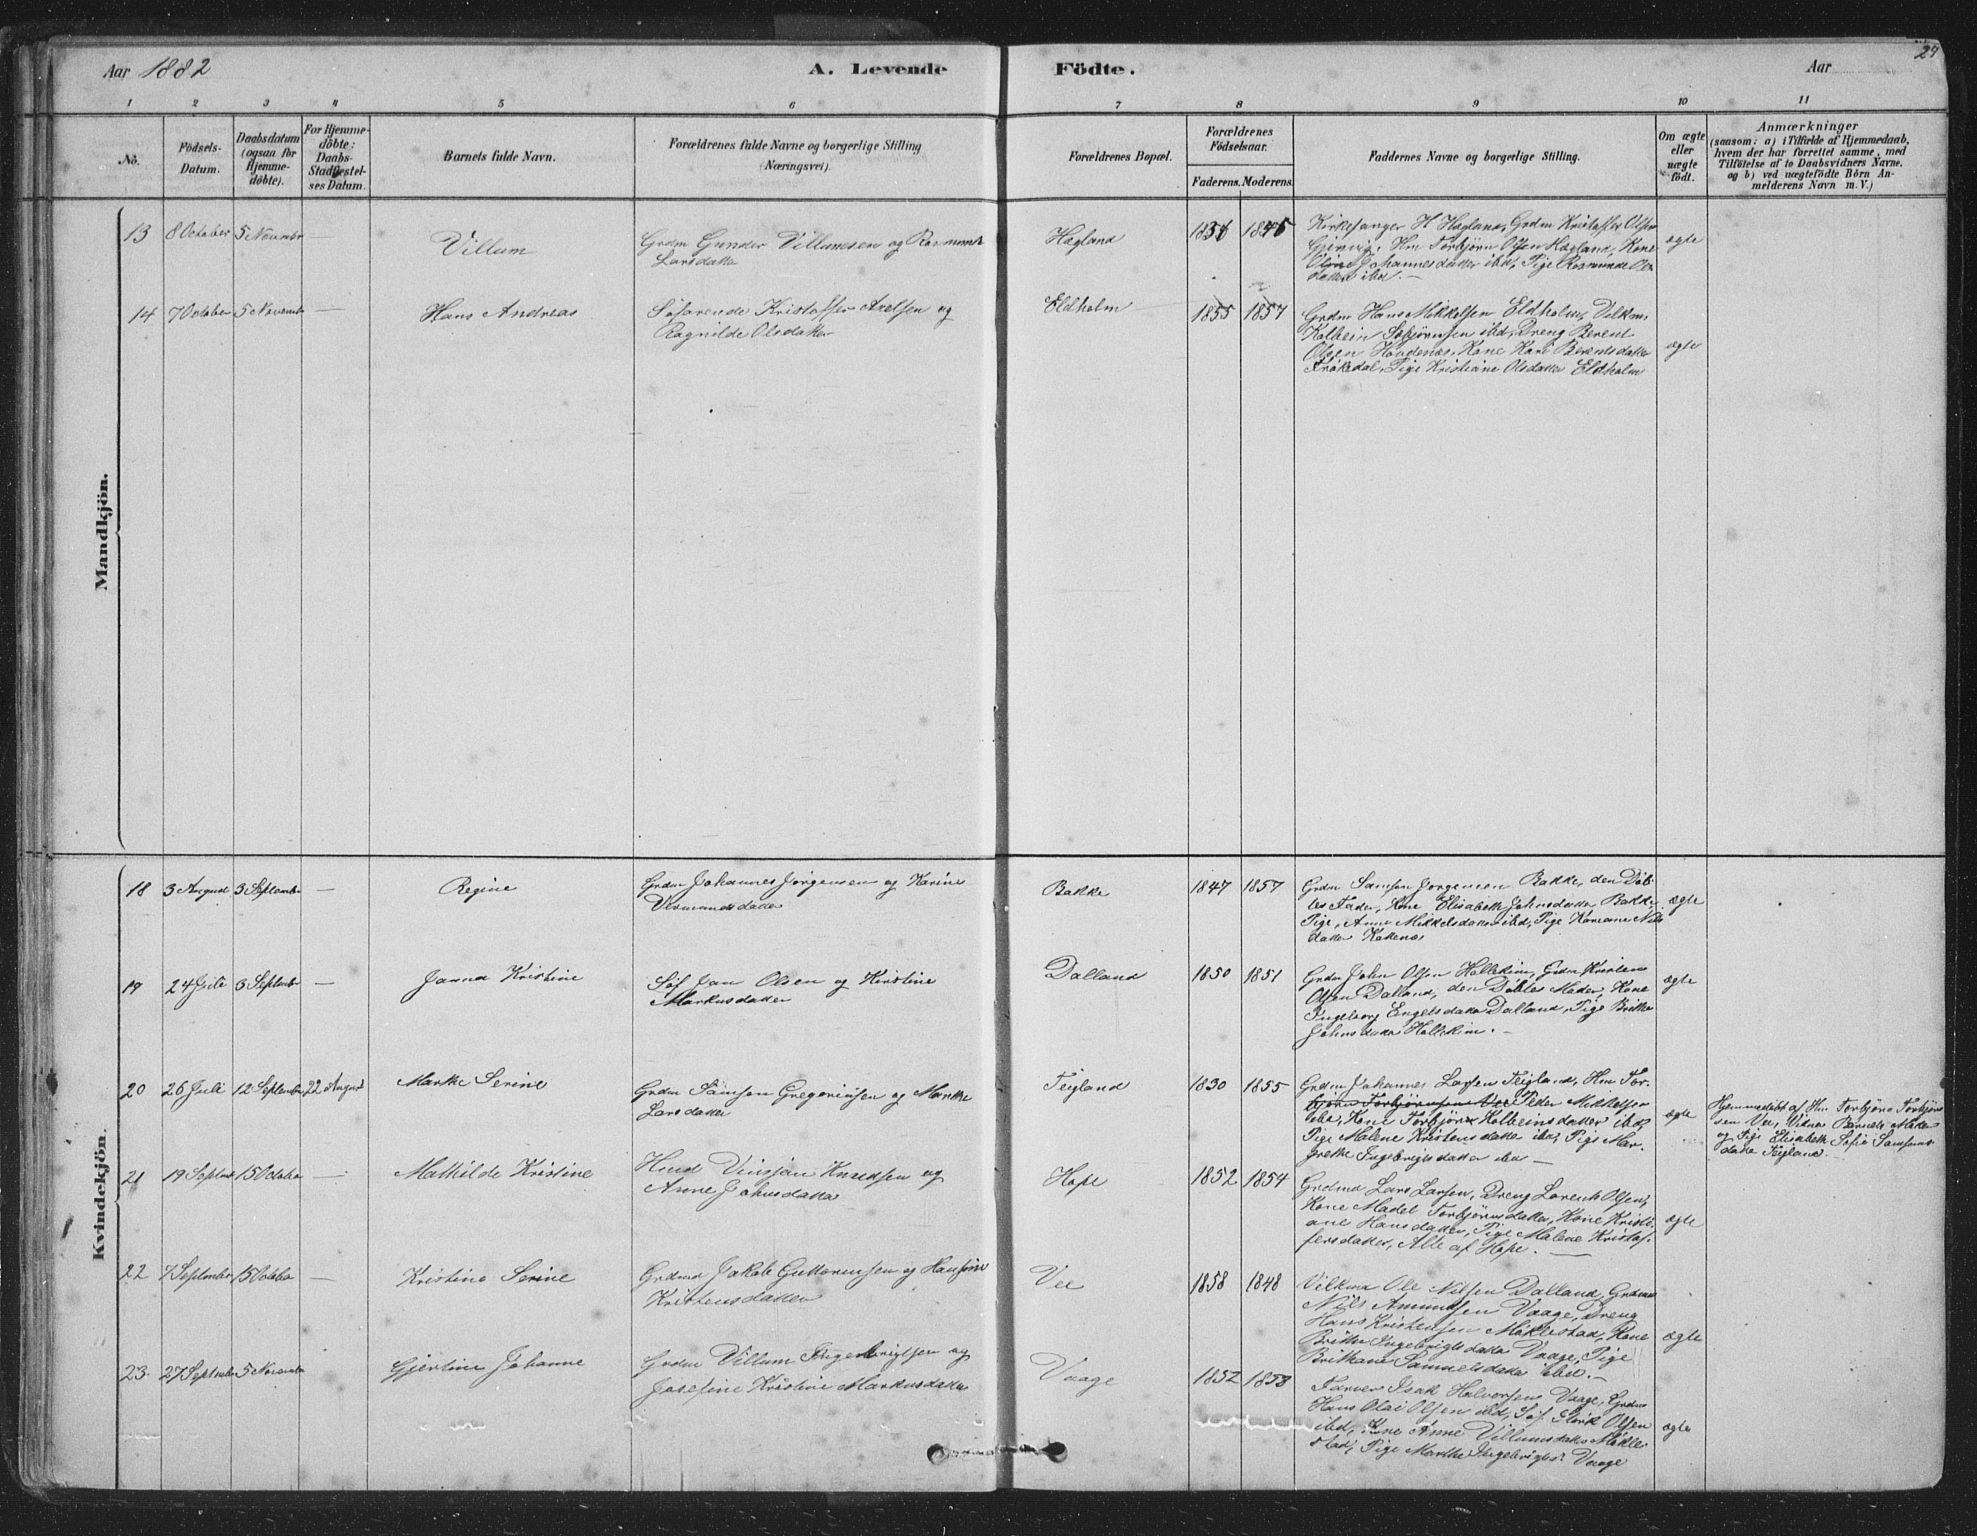 Aar 1882
A. Levende Födte.
Aar
24
1 2 3 4 5 6 7 8 9 10 11
No.
Födsels-
Datum.
Daabsdatum
(ogsaa for
Hjemme-
döbte).
For Hjemme-
döbte:
Daabs-
Stadfæstel-
ses Datum.
Barnets fulde Navn.
Forældrenes fulde Navne og borgerlige Stilling
(Næringsvei).
Forældrenes Bopæl.
Forældrenes
Födselsaar.
Faderens. Moderens.
Faddernes Navne og borgerlige Stilling.
Om ægte
eller
uægte
födt.
Anmærkninger
(saasom: a) i Tilfælde af Hjemmedaab,
hvem der har forrettet samme, med
Tilföielse af to Daabsvidners Navne,
og b) ved uægtefödte Börn An-
melderens Navn m. V.)
Mandkjön.
13 8 October 5 Novembr — Villum
Grdm Gunder Villumsen og
Larsdatter
Hagland
1845
Kirkesanger H Hagland, Grdm Kristoffer Olsen
Hm Torbjörn Olsen Hagland, Kone
Johannesdatter ibd, Pige Rasmunde Ols
datter ibd. —
ægte
14 7 October 5 Novembr — Hans Andreas
Söfarende Kristoffer Axelsen og
Ragnilde Olsdatter
Eldholm
1855 1857
Grdm Hans Mikkelsen Eldholm,
Kolbein ibd, Dreng Berent
Olsen Kone Kari Berentsdatter
Pige Kristiane Olsdatter Eldholm
ægte
Kvindekjön.
18 3 August 3 Septembr — Regine
Grdm Johannes Jörgensen og Karine
Vermundsdatter
Bakke
1847 1857
Grdm Samson Jorgensen Bakke, den Döb-
tes Fader, Kone Elisabeth Johnsdatter Bakke,
Pige, Anne Mikkelsdatter ibd, Pige Nils
datter
ægte
19 24 Juli 3 Septembr — Janna Kristine
Söf Jan Olsen og Kristine
Markusdatter
Dalland
1850 1851
Grdm John Olsen Grdm Kristen
Olsen Dalland, den Döbtes Moder, Kone
Ingeborg Engelsdatter Dalland, Pige Brithe
Johnsdatter
ægte
20 26 Juli 12 Septembr 22 August Marthe Serine
Grdm Samson Gregoriusen og Marthe
Larsdatter
Teigland
1830 1855
Grdm Johannes Larsen Teigland, Hm Tor-
björn Torbjörnsen Vee Peder Mikkelsen
ibd, Kone Torbjör Kolbeinsdatter ibd,
Pige Malene Kristensdatter ibd, Pige Mar-
grethe Ingebrigtsdatter ibd —
ægte
Hjemmedöbt af Hm Torbjörn Torbjörn
sen Vee, Vidner Barnets Moder
og Pige Elisabeth Sofie Samsons
datter Teigland. —
21 19 Septbr 15 October — Mathilde Kristine
Hmd Vinsjan Knudsen og
Anne Johnsdatter
Hope
1852 1854
Grdmd Lars Larsen, Dreng Lorents Olsen,
Kone Madel Torbjörnsdatter, Kone Kristi-
ane Hansdatter, Pige Malene Kristof-
fersdatter, Alle af Hope. —
ægte
22 7 Septembr 15 October — Kristine Serine
Grdmd Jakob Guttormsen og Hansine
Kristensdatter
Vee
1858 1848
Ole Nilsen Dalland, Grdmd
Nils Amundsen Vaage, Dreng
Hans Kristensen Möklestad, Kone
Brithe Ingebrigtsdatter Vaage, Pige
Brithane Samuelsdatter ibd. —
ægte
23. 27 Septembr 5 Novembr Gjertine Johanne
Grdm Villum Ingebrigtsen og
Josefine Kristine Markusdatter
Vaage
1852 1858
Farver Isak Halvorsen Vaage, Grdm
Hans Olai Olsen ibd, Söf. Olsen
ibd, Kone Anne Villumsdatter Mökle-
stad, Pige Marthe Ingebrigts: Vaage
ægte